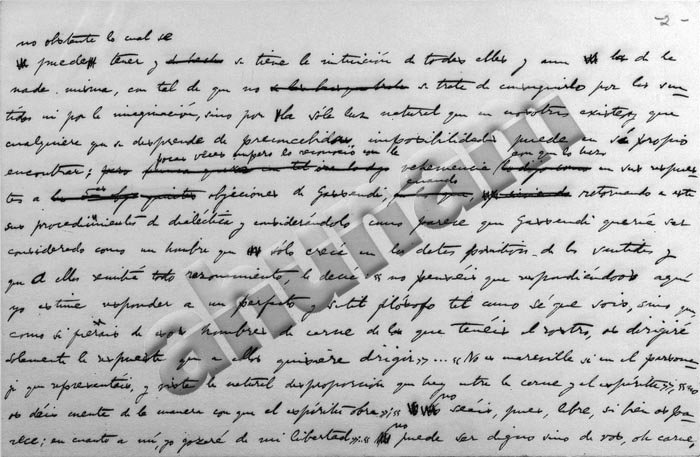 -2-
no obstante lo cual se
puede tener y se tiene la intuición de todas ellas y aun la de la
nada misma, con tal de que no se trate de conseguirlo por los sen-
tidos ni por la imaginación, sino por la sóla luz natural que en nosotros existe, y que
cualquiera que se desprenda de preconcebidas imposibilidades puede en sí propio
pocas veces empero lo reconoció con la con que lo hace
encontrar; vehemencia en sus respues-
cuando
tas a objeciones de Gassendi, retornando a
sus procedimientos de dialéctica y considerándolo como parece que Gassendi quería ser
considerado como un hombre que sólo creía en los datos positivos de los sentidos y
que a ellos todo razonamiento, le decía: "no penséis que respondiéndoos aquí
yo estime responder a un perfecto y sutil filósofo tal como sé que sois, sino que
como si de esos hombres de carne de los que tenéis el rostro, os dirigiré
solamente la respuesta que a ellos quisiera dirigir"... "No es maravilla si en el persona-
je que representáis, y vista la natural desproporción que hay entre la carne y el espíritu,
os déis cuenta de la manera con que el espíritu obra"; no seáis, pues, libre, si bien os pa-
rece; en cuanto a mí, yo gozaré de mi libertad"; no puede ser digno sino de vos, oh carne,
ahunam